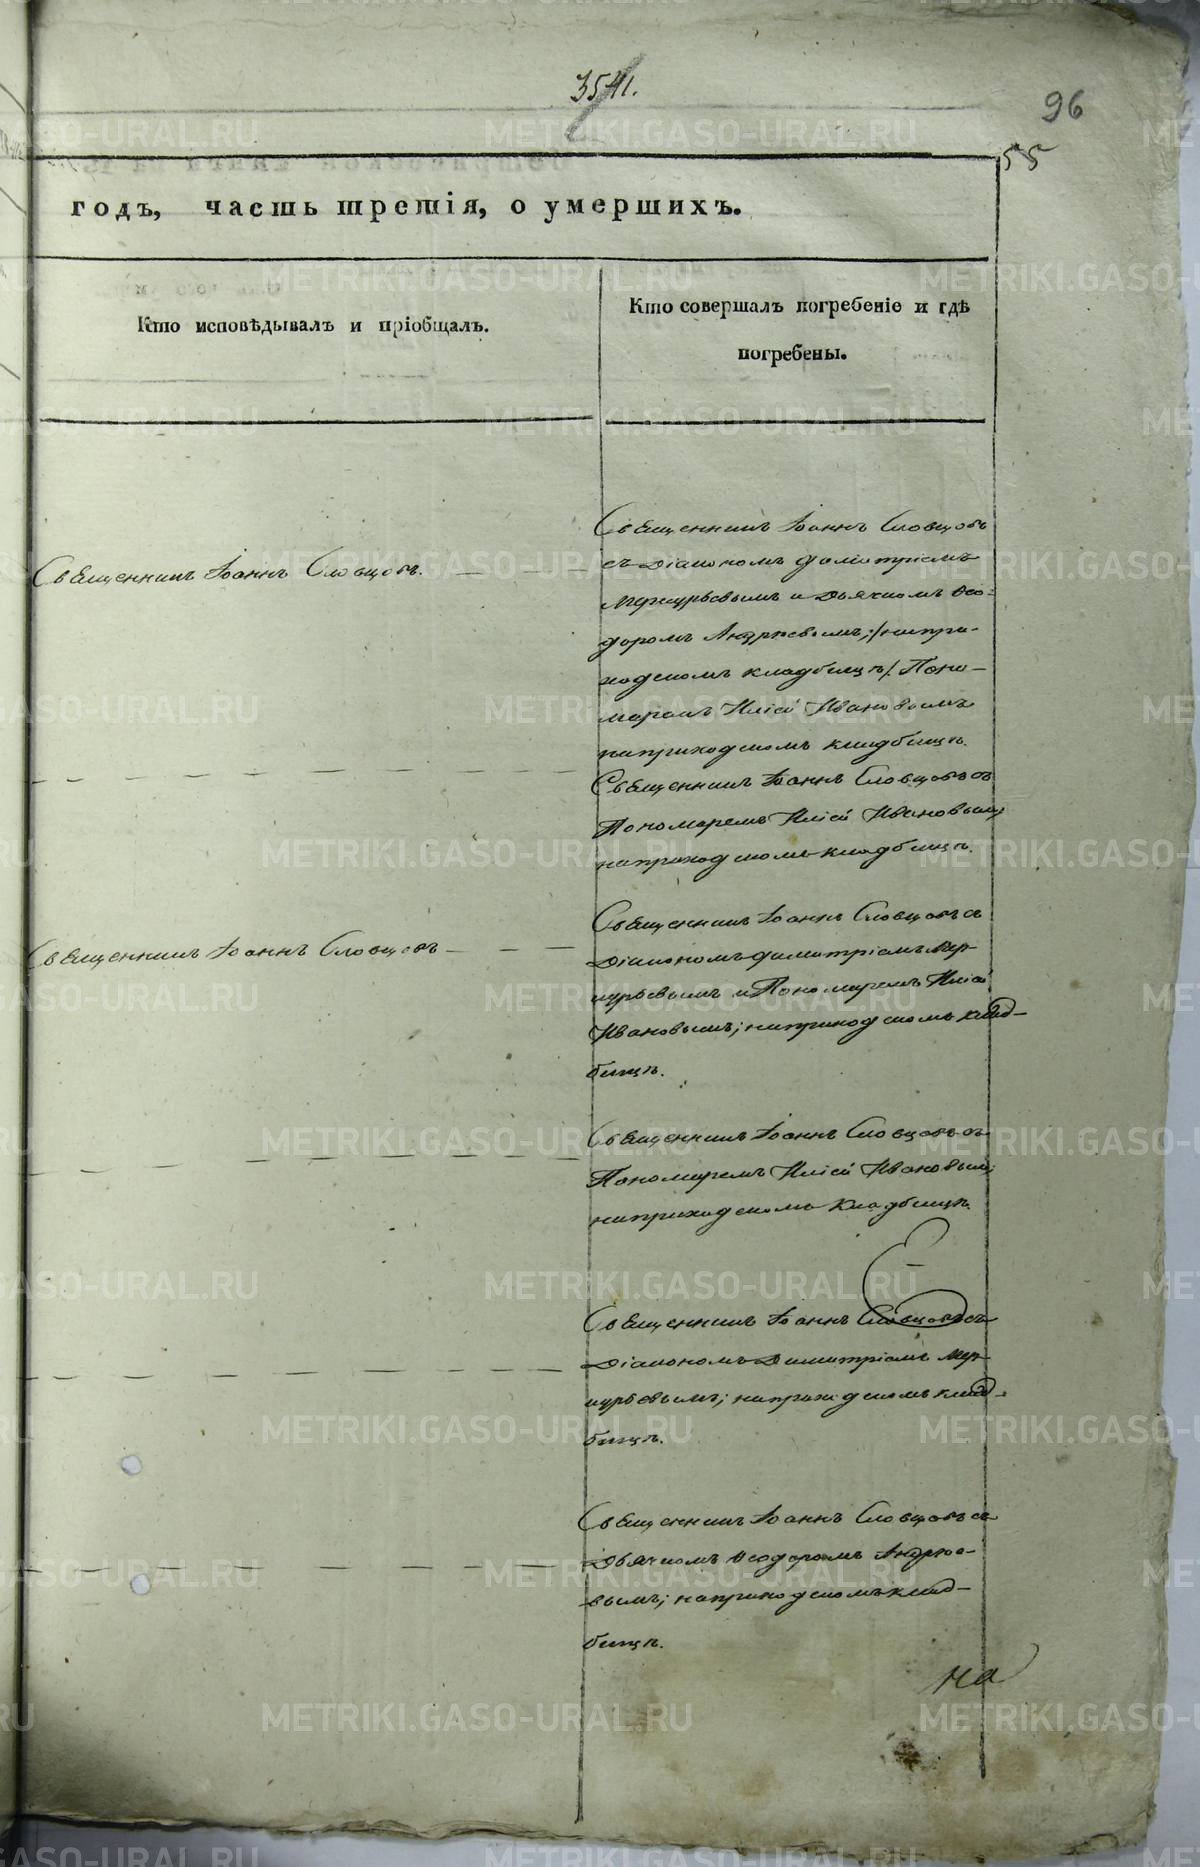 3541.
96
55
годъ, часть третія, о умершихъ.
Кто исповѣдывалъ и пріобщалъ.
Кто совершалъ погребеніе и гдѣ
погребены.
Священникъ Іоаннъ Словцовъ.
Священникъ Іоаннъ Словцовъ
съ Діакономъ Димитріемъ
Меркурьевымъ и Дьячкомъ Ѳео-
доромъ Андрѣевымъ; /на при-
ходскомъ кладбищѣ/. Поно-
маремъ Иліей Ивановымъ
на приходскомъ кладбищѣ.
Священникъ Іоаннъ Словцовъ съ
Пономаремъ Иліей Ивановымъ
на приходскомъ кладбищѣ.
Священникъ Іоаннъ Словцовъ
Священникъ Іоаннъ Словцовъ съ
Діакономъ Димитріемъ Мер-
курьевымъ и Пономаремъ Иліей
Ивановымъ; на приходскомъ клад-
бищѣ.
Священникъ Іоаннъ Словцовъ съ
Пономаремъ Иліей Ивановымъ
на приходскомъ кладбищѣ.
Священникъ Іоаннъ Словцовъ съ
Діакономъ Димитріемъ Мер-
курьевымъ; на приходскомъ клад-
бищѣ.
Священникъ Іоаннъ Словцовъ съ
Дьячкомъ Ѳеодоромъ Андрѣе-
вымъ; на приходскомъ клад-
бищѣ.
на
METRIKI.GASO-URAL.RU